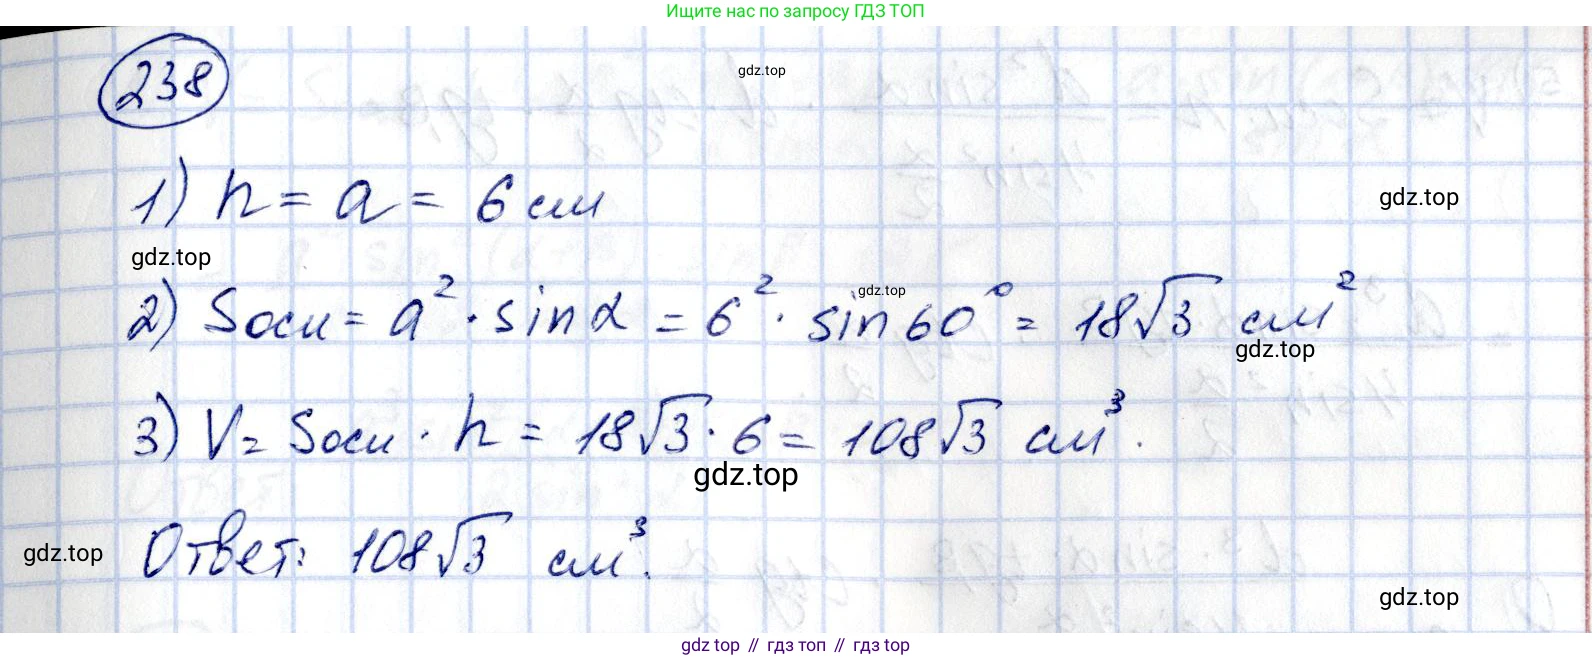 Ищите нас по запросу ГДЗ ТОП
238
gdz.top
1) h = a = 6 см
gdz.top
gdz.top
2) Sосн = a² · sin α = 6² · sin 60° = 18√3 см²
gdz.top
gdz.top
3) V = Sосн · h = 18√3 · 6 = 108√3 см³.
gdz.top
Ответ: 108√3 см³.
gdz.top
gdz.top
gdz top // гдз топ // гдз top